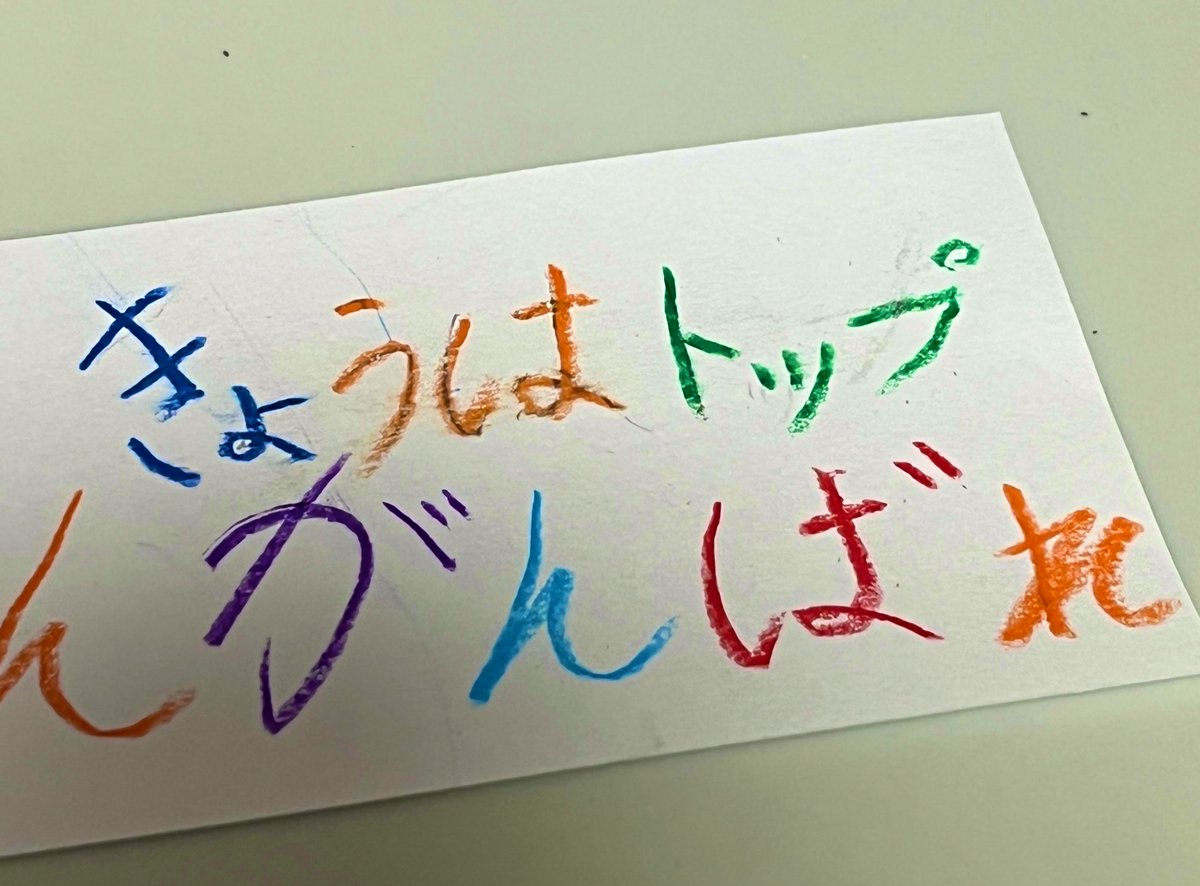 きょうはトップ
んがんばれ